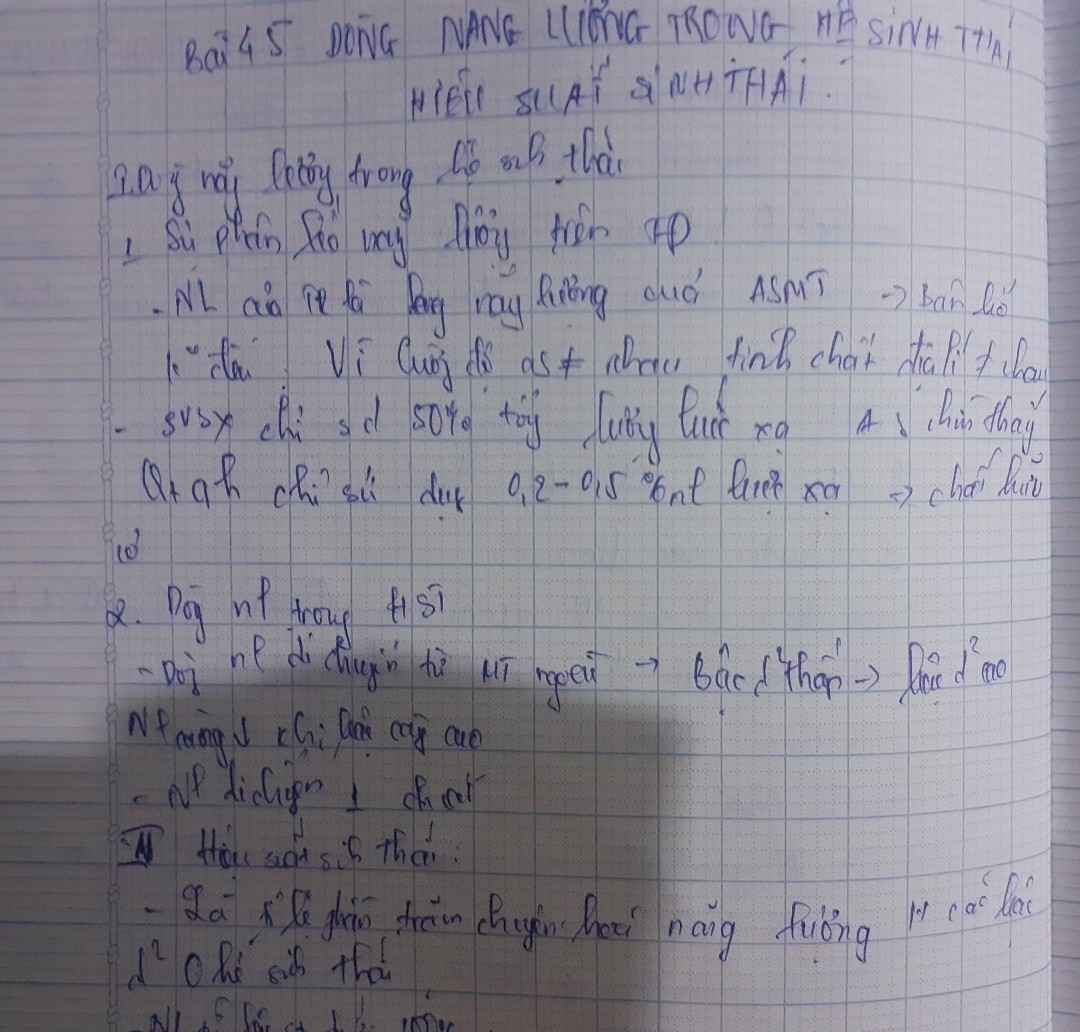 Bài 45 DÒNG NĂNG LƯỢNG TRONG HỆ SINH THÁI
HIỆU SUẤT SINH THÁI.
I. năg lượng trong hệ sinh thái
1 Sự phân bố năg lượng trên TĐ
- NL as năg lượng ASMT -> Bán
Vì cường độ as ≠ nhau tính chất địa lí ≠ nhau
- SVSX chỉ sd 50% tổg lượng bức xạ A S
Qt qh chỉ sử dụg 0,2 - 0,5 % nl bức xạ -> chất hữu
cơ
2. Dòg nl trong HST
- Dòg nl di chuyển từ MT -> Bậc d² thấp -> bậc d² cao
Nl càng cao
- Nl 1 chiều
II Hiệu suất sinh thái:
- Là tỉ lệ phần trăm chuyển hoá năng lượng các bậc
d² hệ sinh thái